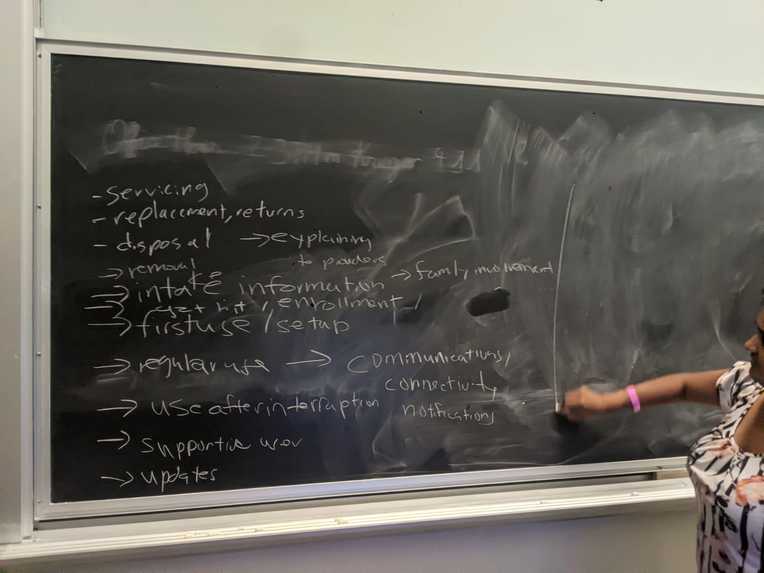 - servicing
- replacement, returns
- disposal → explaining
to providers
→ removal
→ intake information → family involvement
→ list, enrollment
→ first use / setup
→ regular use → communications,
connectivity,
→ use after interruption notifications
→ supportive use
→ updates